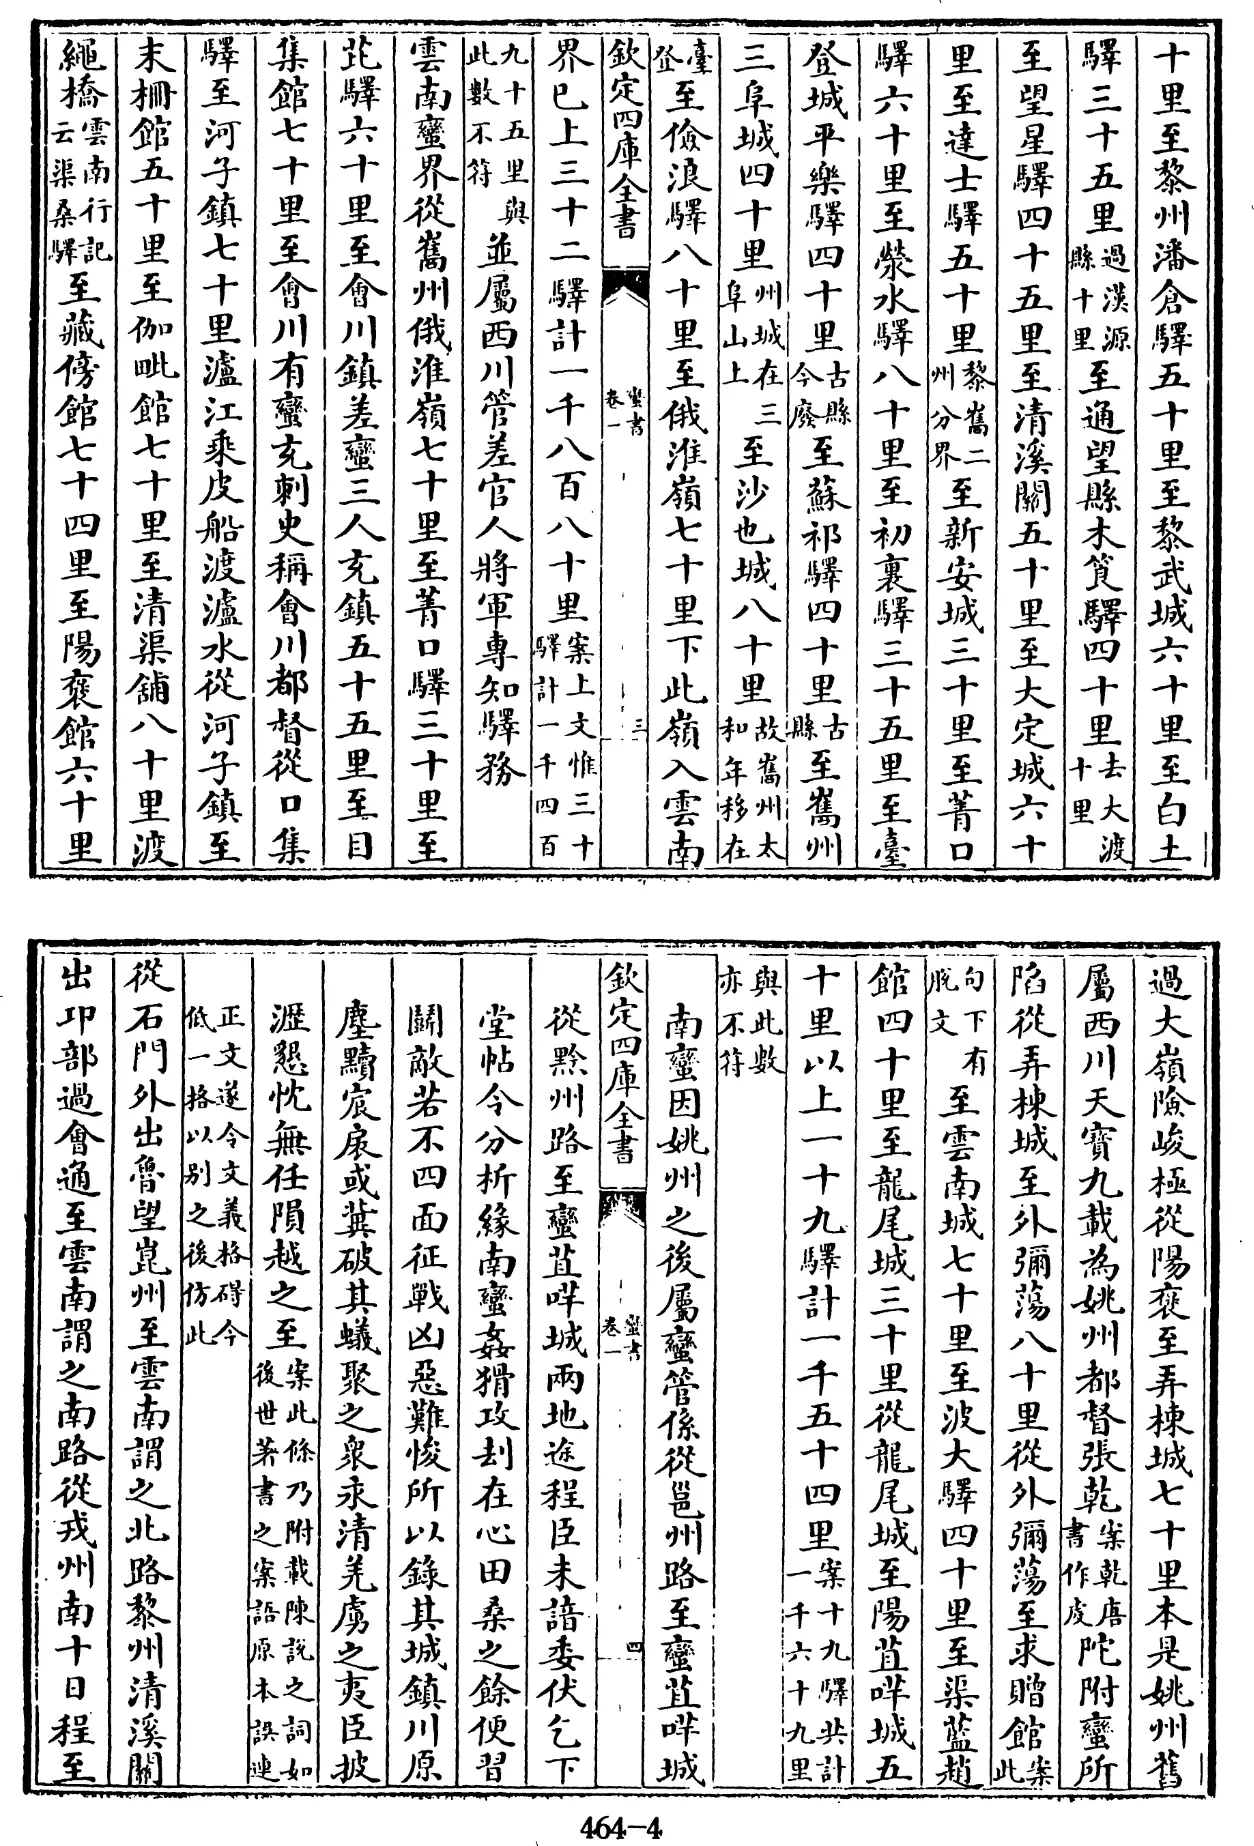 十里至黎州潘倉驛五十里至黎武城六十里至白土
驛三十五里過漢源縣十里至通望縣木筤驛四十里去大渡十里
至望星驛四十五里至清溪關五十里至大定城六十
里至達士驛五十里黎巂二州分界至新安城三十里至菁口
驛六十里至滎水驛八十里至初裏驛三十五里至臺
登城平樂驛四十里古縣今廢至蘇祁驛四十里古縣至巂州
三阜城四十里州城在三阜山上至沙也城八十里故巂州太和年移在
臺登至儉浪驛八十里至俄淮嶺七十里下此嶺入雲南
欽定四庫全書
蠻書
卷一
三
界已上三十二驛計一千八百八十里案上文惟三十驛計一千四百
九十五里與此數不符並屬西川管差官人將軍專知驛務
雲南蠻界從巂州俄淮嶺七十里至菁口驛三十里至
芘驛六十里至會川鎮差蠻三人充鎮五十五里至目
集館七十里至會川有蠻充刺史稱會川都督從口集
驛至河子鎮七十里瀘江乘皮船渡瀘水從河子鎮至
末柵館五十里至伽毗館七十里至清渠鋪八十里渡
繩橋雲南行記云渠桑驛至藏傍館七十四里至陽褒館六十里
過大嶺險峻極從陽褒至弄棟城七十里本是姚州舊
屬西川天寶九載為姚州都督張乾案乾唐書作虔陀附蠻所
陷從弄棟城至外彌蕩八十里從外彌蕩至求贈館案此
句下有脫文至雲南城七十里至波大驛四十里至渠藍趙
館四十里至龍尾城三十里從龍尾城至陽苴哶城五
十里以上一十九驛計一千五十四里案十九驛共計一千六十九里
與此數亦不符
南蠻因姚州之後屬蠻管係從邕州路至蠻苴哶城
欽定四庫全書
蠻書
卷一
四
從黔州路至蠻苴哶城兩地途程臣未諳委伏乞下
堂帖令分析緣南蠻姦猾攻刦在心田桑之餘便習
鬬敵若不四面征戰凶惡難悛所以錄其城鎮川原
塵黷宸扆或冀破其蟻聚之衆永清羌虜之夷臣披
瀝懇忱無任隕越之至案此條乃附載陳說之詞如後世著書之案語原本誤連
正文遂令文義格碍今低一格以别之後仿此
從石門外出魯望崑州至雲南謂之北路黎州清溪關
出卭部過會通至雲南謂之南路從戎州南十日程至
464-4